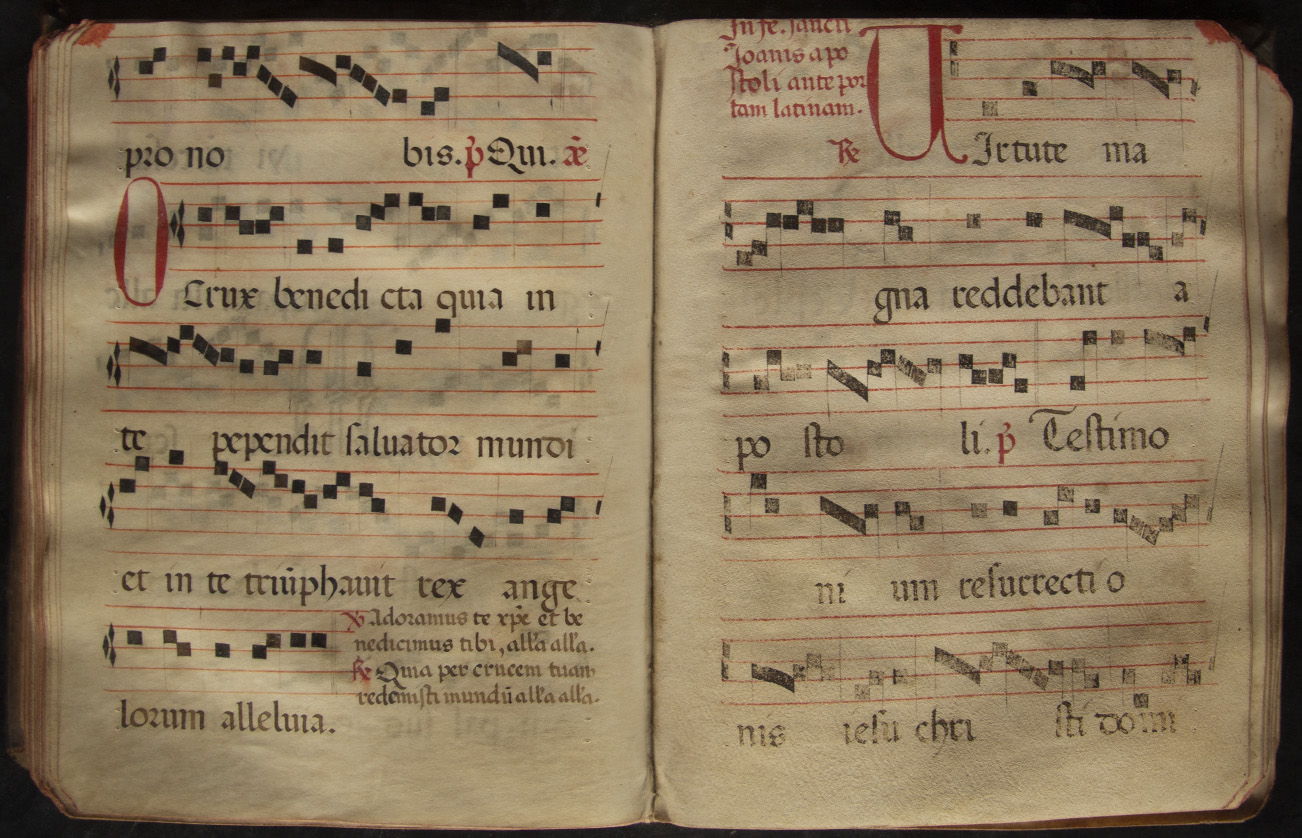 pro no bis. p̃ Qui. æ̃
O Crux benedi cta quia in
te pependit saluator mundi
et in te triūphauit rex ange
℣ Adoramus te xp̃e et be
nedicimus tibi, all'a all'a.
℟ Quia per crucem tuam
redemisti mundũ all'a all'a.
lorum alleluia.
In fe. sancti
Joanis apo
stoli ante por
tam latinam.
℟ UIrtute ma
gna reddebant a
po sto li. p̃ Testimo
ni um resurrecti o
nis iesu chri sti domi